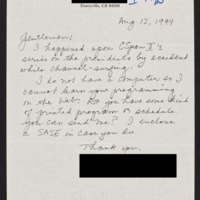 Aug 12, 1999
Gentlemen:
I happened upon CSpan II's
series on the presidents by accident
while channel-surfing.
I do not have a computer so I
cannot learn your programming
on the net. Do you have some kind
of printed program or schedule
you can send me? I enclose
a SASE in case you do.
Thank you,